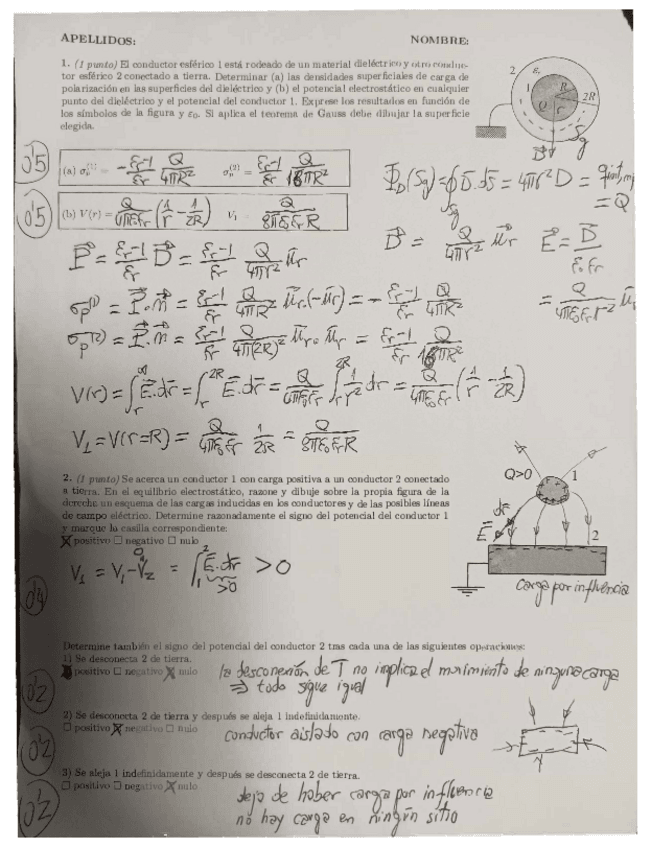 APELLIDOS: NOMBRE:
1. (1 punto) El conductor esférico 1 está rodeado de un material dieléctrico y otro conduc-
tor esférico 2 conectado a tierra. Determinar (a) las densidades superficiales de carga de
polarización en las superficies del dieléctrico y (b) el potencial electrostático en cualquier
punto del dieléctrico y el potencial del conductor 1. Exprese los resultados en función de
los símbolos de la figura y ε₀. Si aplica el teorema de Gauss debe dibujar la superficie
elegida.
2 εr 1 R 2R Q r Sg D⃗
0'5
(a) σp(1) = -(εr-1)/εr Q/4πR² σp(2) = (εr-1)/εr Q/16πR²
ΦD(Sg) = ∮Sg D̄·ds̄ = 4πr²D = qint,mp
= Q
0'5
(b) V(r) = Q/4πε₀εr (1/r - 1/2R) V₁ = Q/8πε₀εrR
D⃗ = Q/4πr² u⃗r E⃗ = D⃗/ε₀εr
P⃗ = (εr-1)/εr D⃗ = (εr-1)/εr Q/4πr² ūr
= Q/4πε₀εr r² ūr
σp(1) = P⃗·n⃗ = (εr-1)/εr Q/4πR² ūr·(-ūr) = - (εr-1)/εr Q/4πR²
σp(2) = P⃗·n⃗ = (εr-1)/εr Q/4π(2R)² ūr·ūr = (εr-1)/εr Q/16πR²
V(r) = ∫r^∞ E⃗·dr̄ = ∫r^2R E⃗·dr̄ = Q/4πε₀εr ∫r^2R 1/r² dr = Q/4πε₀εr (1/r - 1/2R)
V₁ = V(r=R) = Q/4πε₀εr 1/2R = Q/8πε₀εrR
2. (1 punto) Se acerca un conductor 1 con carga positiva a un conductor 2 conectado
a tierra. En el equilibrio electrostático, razone y dibuje sobre la propia figura de la
derecha un esquema de las cargas inducidas en los conductores y de las posibles líneas
de campo eléctrico. Determine razonadamente el signo del potencial del conductor 1
y marque la casilla correspondiente:
☒ positivo ☐ negativo ☐ nulo
Q>0 1
dr̄
E⃗ 2
Carga por influencia
V₁ = V₁-V₂ = ∫₁² E⃗·dr̄ > 0
0
>0
0'4
Determine también el signo del potencial del conductor 2 tras cada una de las siguientes operaciones:
1) Se desconecta 2 de tierra.
■ positivo ☐ negativo ☒ nulo
la desconexión de T no implica el movimiento de ninguna carga
⇒ todo sigue igual
0'2
2) Se desconecta 2 de tierra y después se aleja 1 indefinidamente.
☐ positivo ☒ negativo ☐ nulo
conductor aislado con carga negativa
0'2
3) Se aleja 1 indefinidamente y después se desconecta 2 de tierra.
☐ positivo ☐ negativo ☒ nulo
deja de haber carga por influencia
no hay carga en ningún sitio
0'2